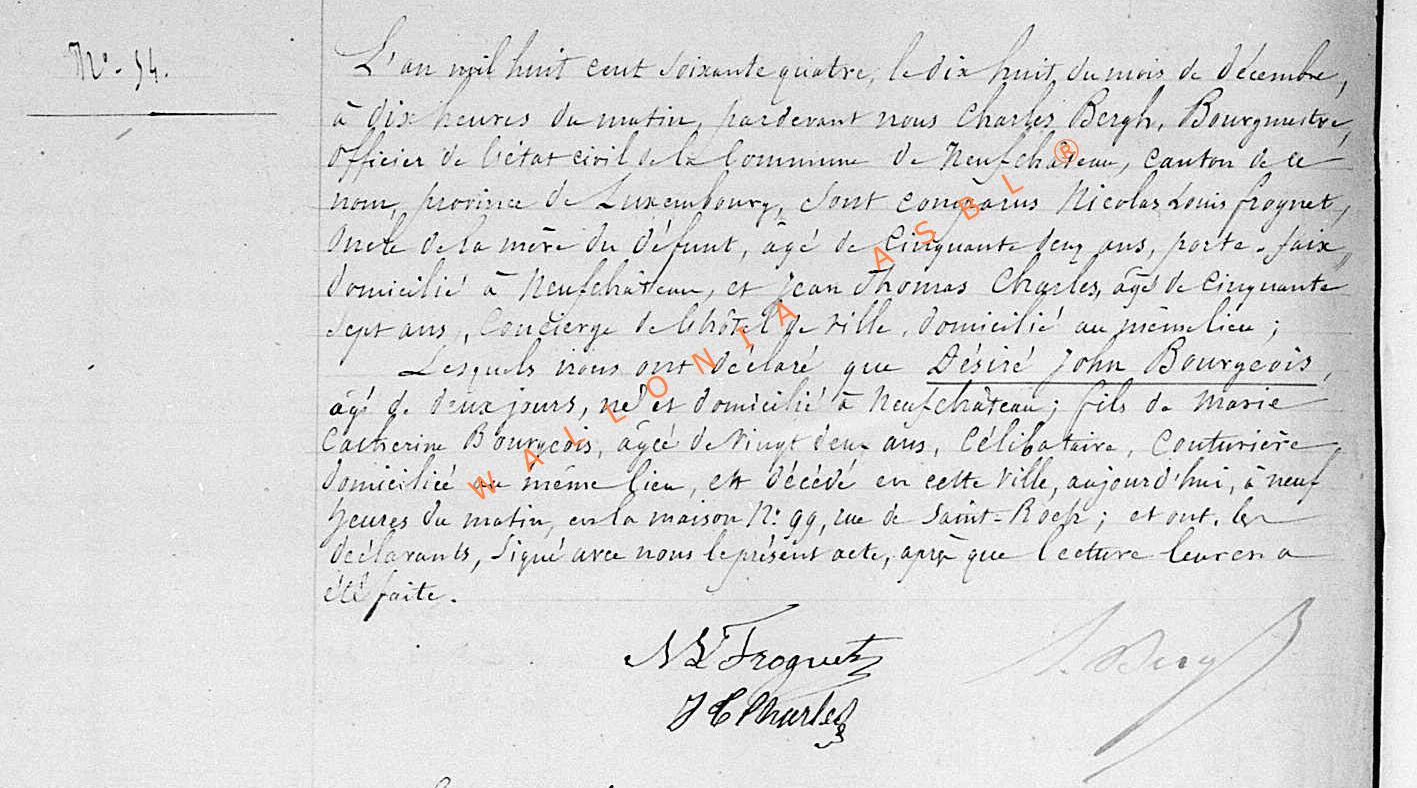 N° 54.
L'an mil huit cent soixante quatre, le dix huit du mois de décembre,
à dix heures du matin, pardevant nous Charles Bergh, Bourgmestre,
officier de l'état civil de la Commune de Neufchâteau, canton de ce
nom, province de Luxembourg, sont comparus Nicolas Louis frognet,
oncle de la mère du défunt, âgé de Cinquante deux ans, porte-faix,
domicilié à Neufchâteau, et Jean Thomas Charles, âgé de Cinquante
sept ans, Concierge de l'hôtel de ville, domicilié au même lieu;
Lesquels nous ont déclaré que Désiré John Bourgeois,
âgé de deux jours, né et domicilié à Neufchâteau; fils de Marie
Catherine Bourgeois, âgée de vingt deux ans, Célibataire, Couturière
domiciliée au même lieu, est décédé en cette ville, aujourd'hui, à neuf
heures du matin, en la maison N° 99, rue de Saint-Roch; et ont, les
déclarants, signé avec nous le présent acte, après que lecture leur en a
été faite.
N L Frognet
J T Charles
WALLONIA ASBL ®